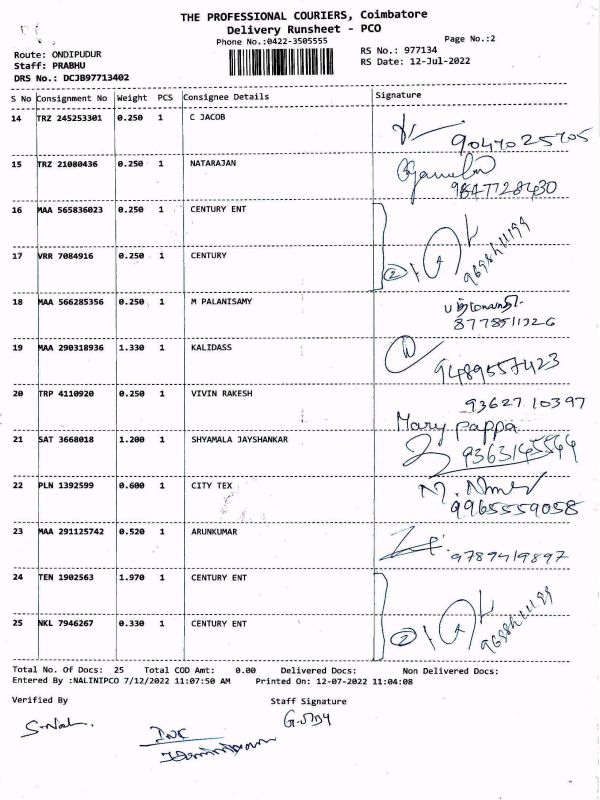 THE PROFESSIONAL COURIERS, Coimbatore
Delivery Runsheet - PCO
Phone No.:0422-3505555
Page No.:2
Route: ONDIPUDUR
Staff: PRABHU
DRS No.: DCJB97713402
RS No.: 977134
RS Date: 12-Jul-2022
S No Consignment No Weight PCS Consignee Details Signature
14 TRZ 245253301 0.250 1 C JACOB
15 TRZ 21080436 0.250 1 NATARAJAN
9847728430
16 MAA 565836023 0.250 1 CENTURY ENT
17 VRR 7084916 0.250 1 CENTURY
2
18 MAA 566285356 0.250 1 M PALANISAMY
8778511326
19 MAA 290318936 1.330 1 KALIDASS
9489557423
20 TRP 4110920 0.250 1 VIVIN RAKESH
93627 10397
Mary pappa
21 SAT 3668018 1.200 1 SHYAMALA JAYSHANKAR
22 PLN 1392599 0.600 1 CITY TEX
9965559058
23 MAA 291125742 0.520 1 ARUNKUMAR
9789419897
24 TEN 1902563 1.970 1 CENTURY ENT
25 NKL 7946267 0.330 1 CENTURY ENT
2
Total No. Of Docs: 25 Total COD Amt: 0.00 Delivered Docs: Non Delivered Docs:
Entered By :NALINIPCO 7/12/2022 11:07:50 AM Printed On: 12-07-2022 11:04:08
Verified By Staff Signature